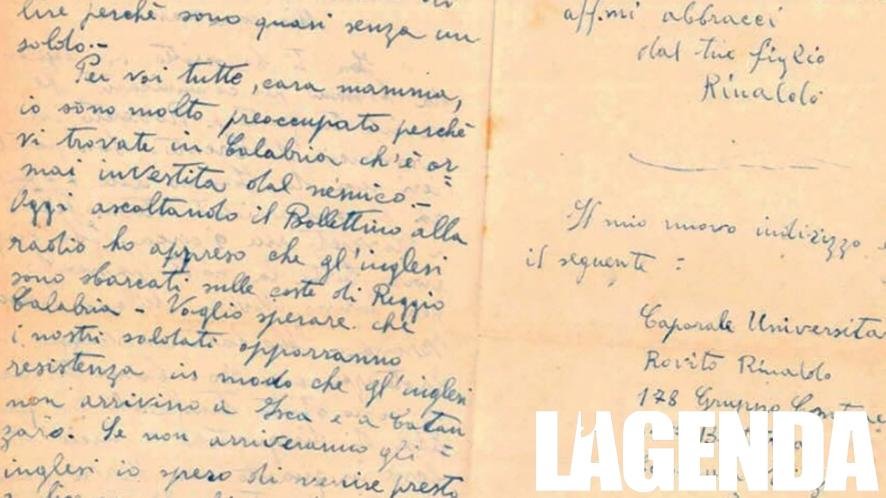 lire perchè sono quasi senza un
soldo.-
Per voi tutte, cara mamma,
io sono molto preoccupato perchè
vi trovate in Calabria ch'è or=
mai investita dal nemico.-
Oggi ascoltando il Bollettino alla
radio ho appreso che gl'inglesi
sono sbarcati sulle coste di Reggio
Calabria - Voglio sperare che
i nostri soldati opporranno
resistenza in modo che gl'inglesi
non arrivino a Isca e a Catan=
zaro. Se non arriveranno gli
inglesi io spero di venire presto
aff.mi abbracci
dal tuo figlio
Rinaldo
Il mio nuovo indirizzo
il seguente =
Caporale Universita
Rovito Rinaldo
178 Gruppo
L'AGENDA